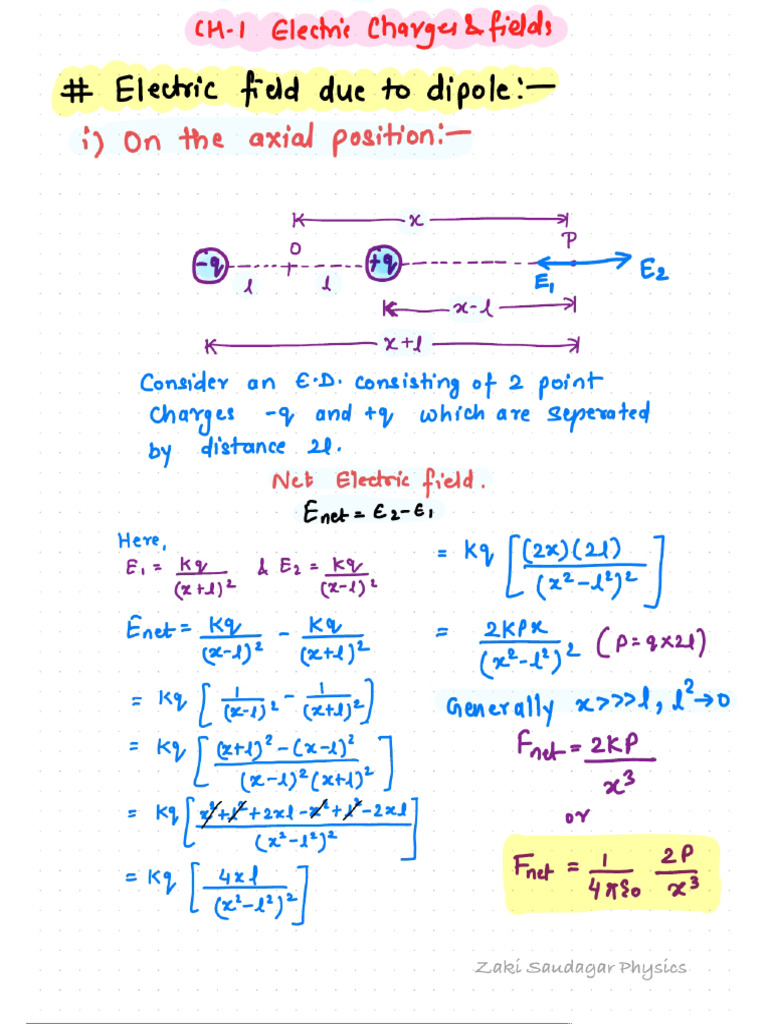 CH-1 Electric Charges & fields
# Electric field due to dipole:-
i) On the axial position:-
x
O
P
-q
+q
l
l
E₁
E₂
x-l
x+l
Consider an E.D. consisting of 2 point
charges -q and +q which are seperated
by distance 2l.
Net Electric field.
Enet = E₂-E₁
Here,
E₁ = Kq/(x+l)² & E₂ = Kq/(x-l)²
Enet = Kq/(x-l)² - Kq/(x+l)²
= Kq [1/(x-l)² - 1/(x+l)²]
= Kq [(x+l)² - (x-l)²/(x-l)²(x+l)²]
= Kq [x²+l²+2xl-x²+l²-2xl/(x²-l²)²]
= Kq [4xl/(x²-l²)²]
= Kq [(2x)(2l)/(x²-l²)²]
= 2KPx/(x²-l²)² (P=q×2l)
Generally x>>>l, l²→0
Fnet = 2KP/x³
or
Fnet = 1/4πε₀ 2P/x³
Zaki Saudagar Physics